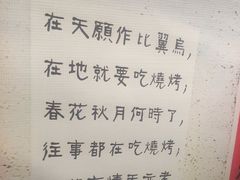 在天願作比翼鳥,
在地就要吃燒烤,
春花秋月何時了,
往事都在吃燒烤,